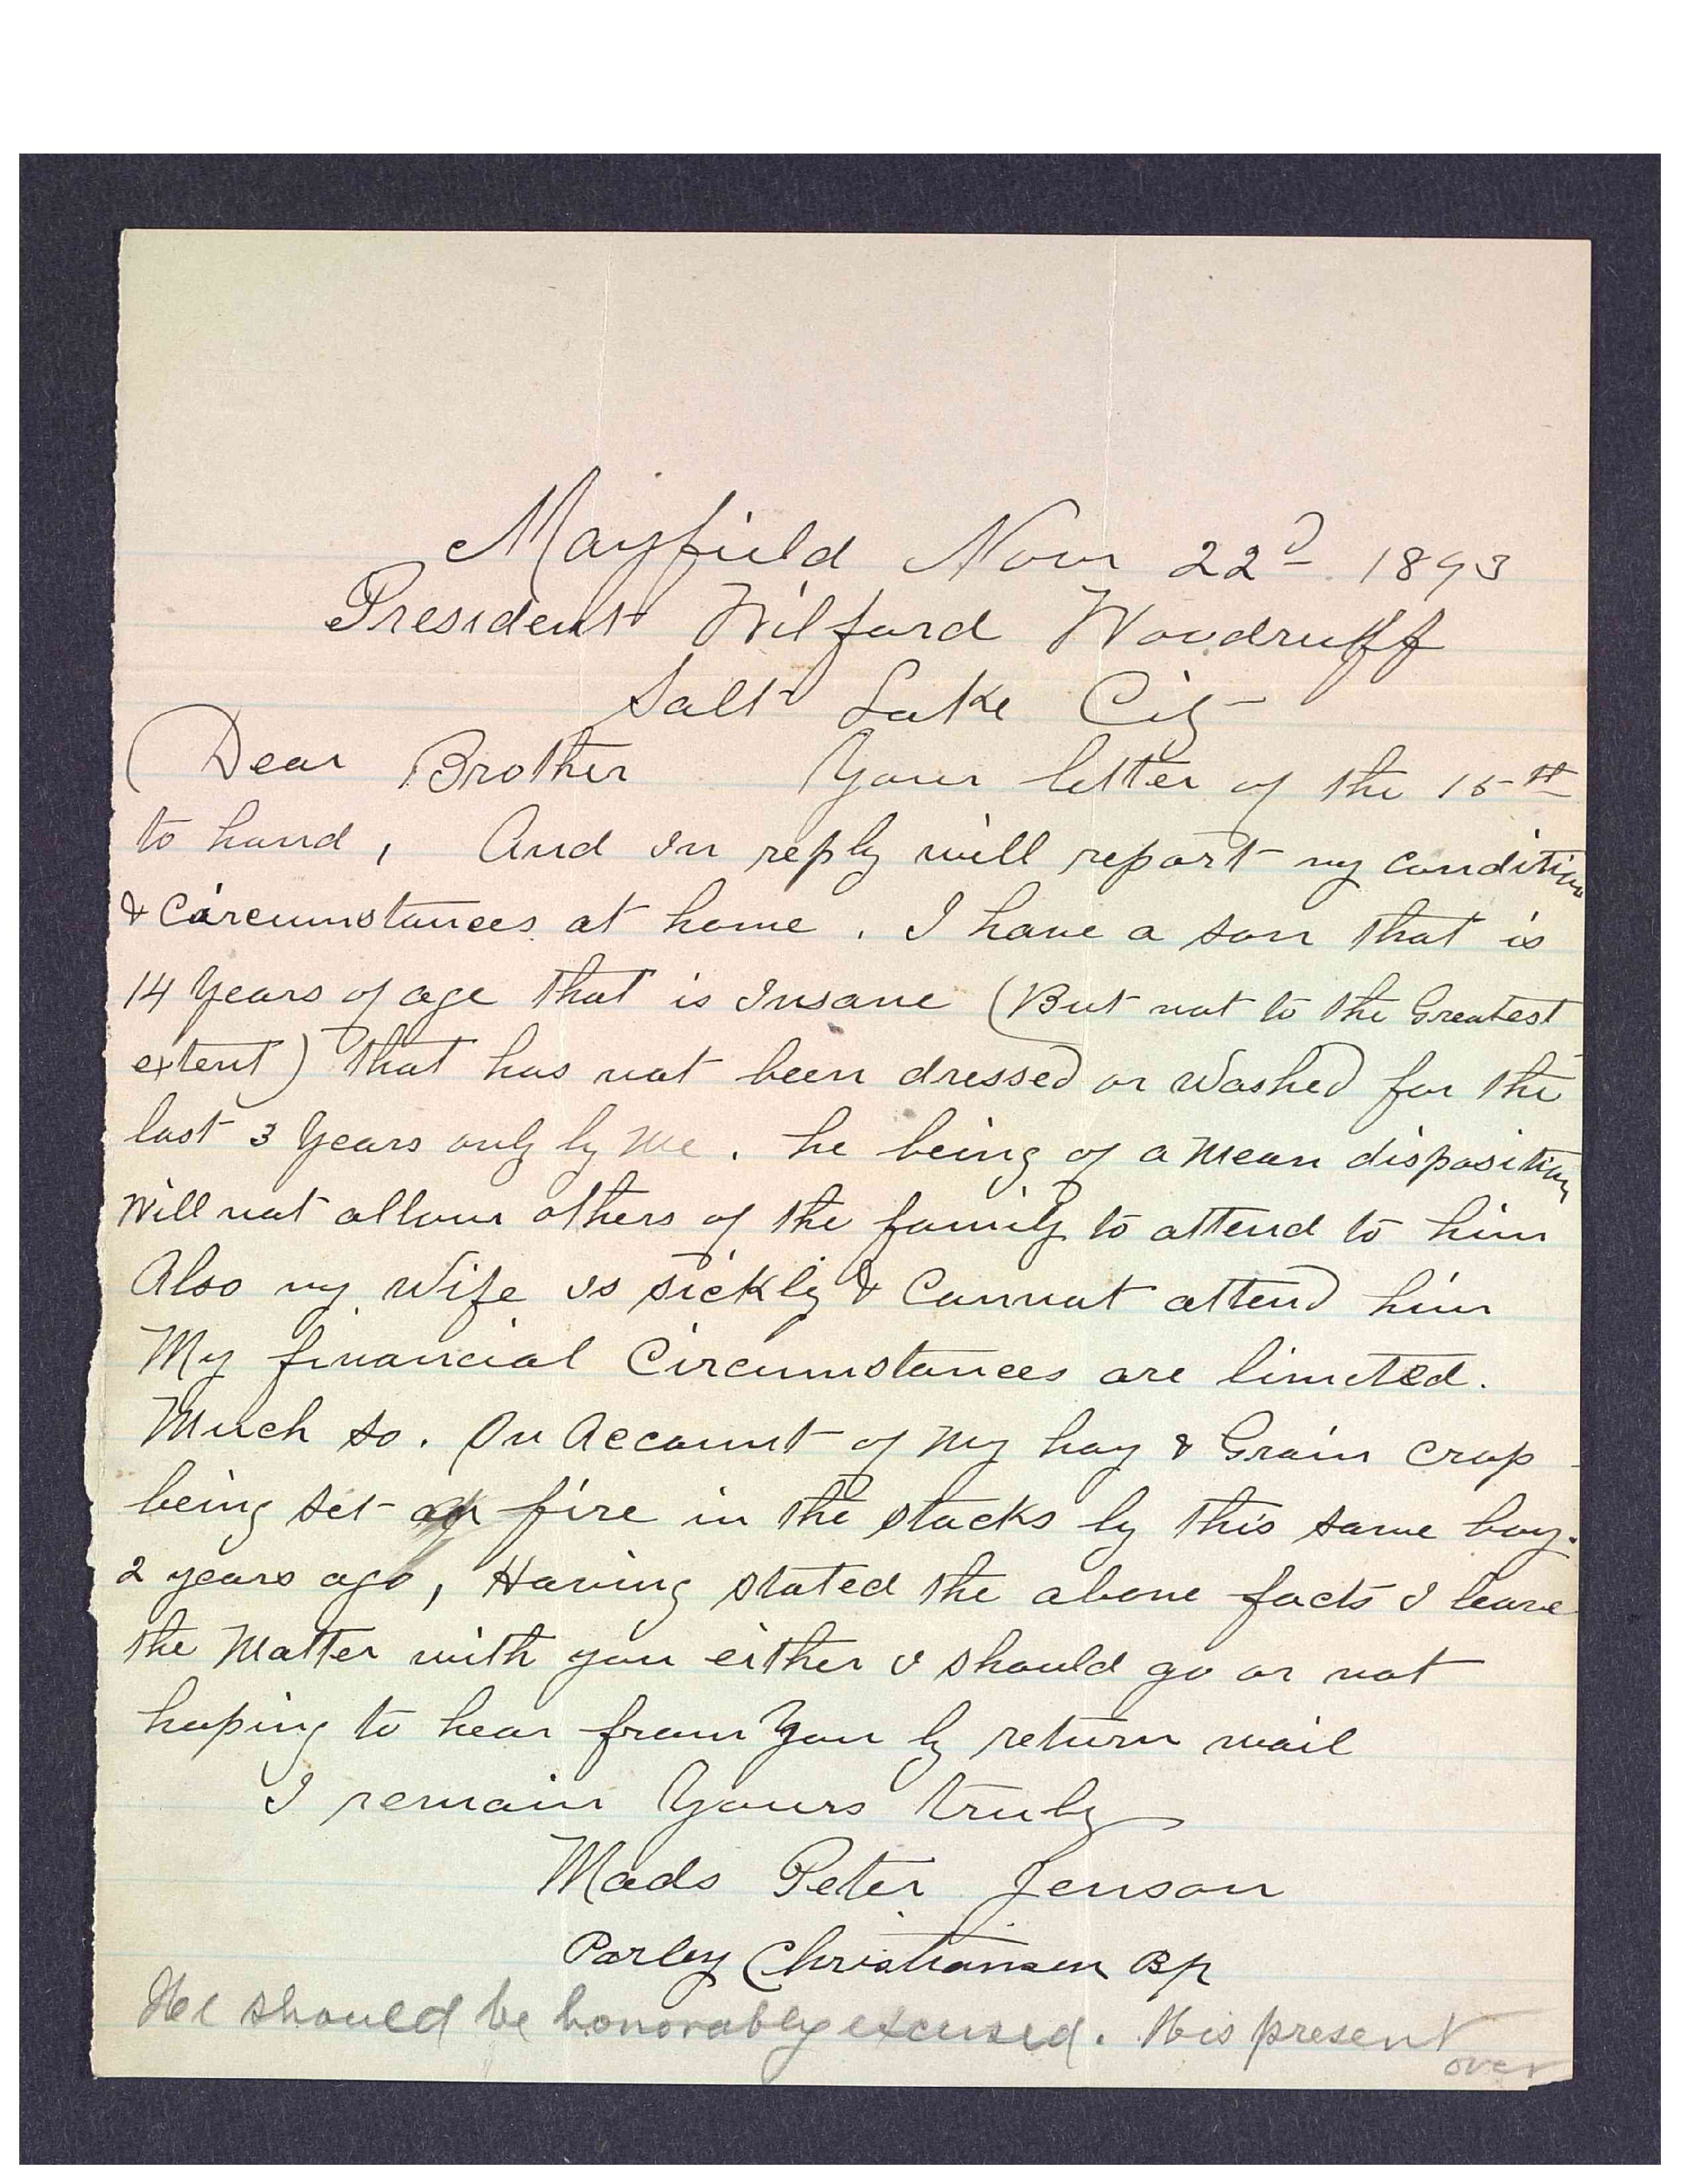 Mayfield Nov 22d 1893
President Wilford Woodruff
Salt Lake City
Dear Brother Your letter of the 15th
to hand, And In reply will report my condition
& Circumstances at home. I have a son that is
14 Years of age that is Insane (But not to the Greatest
extent) that has not been dressed or washed for the
last 3 Years only by Me. he being of a Mean disposition
Will not allow others of the family to attend to him
Also my Wife is sickly & Cannot attend him
My financial Circumstances are limeted.
Much so. On Account of My hay & Grain crop
being set on fire in the stacks by this same boy.
2 years ago, Having stated the above facts I leave
the Matter with you either I should go or not
hoping to hear from You by return mail
I remain Yours truly
Mads Peter Jenson
Parley Christiansen Bp
He should be honorably excused. His present
over